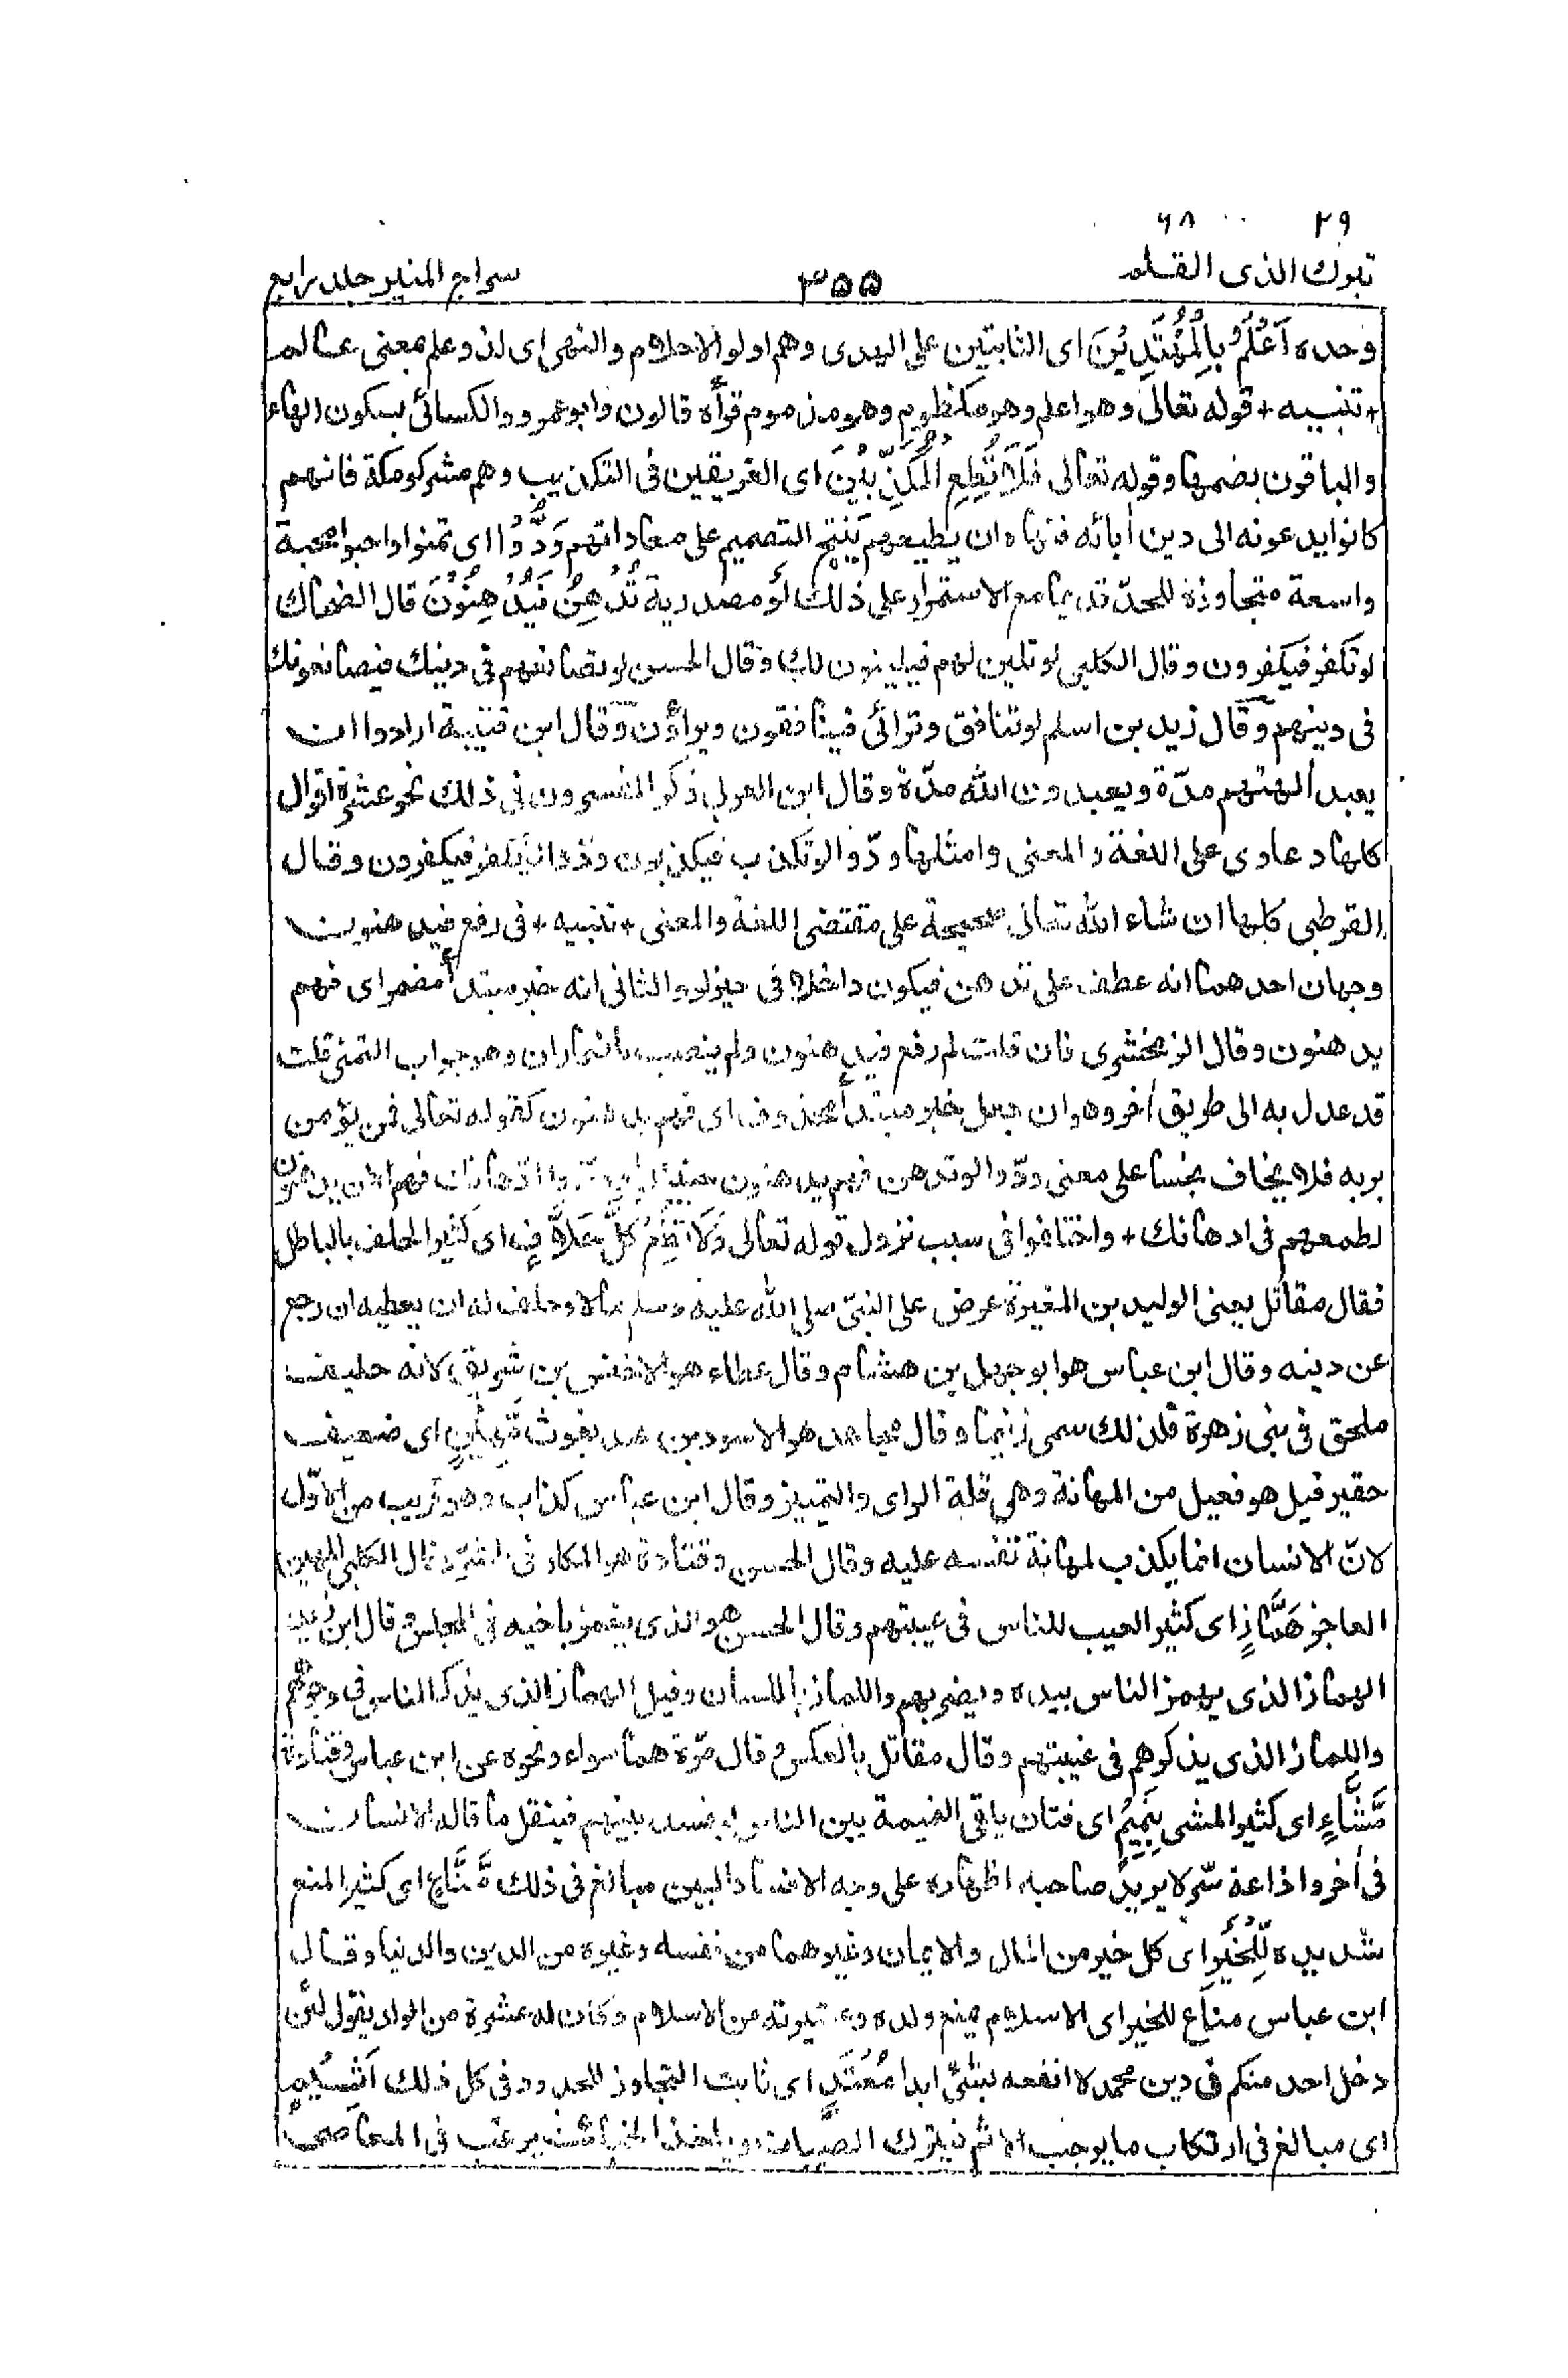 ۲۹ ۶۸
تبرك الذى القلم ۳۵۵ سراج المنير جلد رابع
وحده اَعْلَمُ بِالْمُهْتَدِيْنَ اى الثابتين على الهدى وهم اولو الاحلام والنهى اى اذ وعلم معنى عالم
+ تنبيه + قوله تعالى وهو اعلم وهو مكظوم وهو مذموم قرأه قالون وابوعمرو والكسائى بسكون الهاء
والباقون بضمها وقوله تعالى فَلَا تُطِعِ الْمُكَذِّبِيْنَ اى الغريقين فى التكذيب وهم مشركو مكة فانهم
كانوا يدعونه الى دين أبائه فنهاه ان يطيعهم ينتج التصميم على معاداتهم وَدُّوْا اى تمنوا واحبوا محبة
واسعة متجاوزة للحدّ قديما مع الاستمرار على ذلك لَوْ مصدرية تُدْهِنُ فَيُدْهِنُوْنَ قال الضحاك
لو تكفر فيكفرون وقال الكلبى لو تلين لهم فيلينون لك وقال الحسن لو تصانعهم فى دينك فيصانعونك
فى دينهم وقال زيد بن اسلم لو تنافق وترائى فينافقون ويراؤن وقال ابن قتيبة ارادوا ان
يعبد ألهتهم مدّة ويعبدون الله مدّة وقال ابن العربى ذكر المفسرون فى ذلك نحو عشرة اقوال
كلها دعاوى على اللغة والمعنى وامثلها ودّوا لو تكذب فيكذبون ودّوا لو تكفر فيكفرون وقال
القرطبى كلها ان شاء الله تعالى صحيحة على مقتضى اللغة والمعنى + تنبيه + فى رفع فيدهنون
وجهان احدهما انه عطف على تدهن فيكون داخلا فى حيز لو والثانى انه خبر مبتدأ مضمر اى فهم
يدهنون وقال الزمخشرى فان قلت لم رفع فيدهنون ولم ينصب باضماران وهو جواب التمنى قلت
قد عدل به الى طريق أخر وهو ان جعل خبر مبتدأ محذوف اى فهم يدهنون كقوله تعالى فمن يؤمن
بربه فلا يخاف بخسا على معنى ودّوا لو تدهن فهم يدهنون حينئذ او ودّوا ادهانك فهم الأن يدهنون
لطمعهم فى ادهانك + واختلفوا فى سبب نزول قوله تعالى وَلَا تُطِعْ كُلَّ حَلَّافٍ اى كثير الحلف بالباطل
فقال مقاتل يعنى الوليد بن المغيرة عرض على النبىّ صلى الله عليه وسلم مالا وحلف له ان يعطيه ان رجع
عن دينه وقال ابن عباس هو ابو جهل بن هشام وقال عطاء هو الاخنس بن شريق لانه حليف
ملحق فى بنى زهرة فلذلك سمى زنيما وقال مجاهد هو الاسود بن عبد يغوث مَّهِيْنٍ اى ضعيف
حقير قيل هو فعيل من المهانة وهى قلة الراى والتمييز وقال ابن عباس كذاب وهو قريب من الاوّل
لانّ الانسان انما يكذب لمهانة نفسه عليه وقال الحسن وقتادة هو المكار فى الشرّ وقال الكلبى المهين
العاجز هَمَّازٍ اى كثير العيب للناس فى غيبتهم وقال الحسن هو الذى يغمز باخيه فى المجلس وقال ابن زيد
الهماز الذى يهمز الناس بيده ويضربهم واللماز باللسان وقيل الهماز الذى يذكر الناس فى وجوههم
واللماز الذى يذكرهم فى غيبتهم وقال مقاتل بالعكس وقال مرّة هما سواء ونحوه عن ابن عباس وقتادة
مَّشَّاءٍ اى كثير المشى بِنَمِيْمٍ اى فتان يلقى النميمة بين الناس ليفسد بينهم فينقل ما قاله الانسان
فى أخر واذاعة سرّ لا يريد صاحبه اظهاره على وجه الافساد البين مبالغ فى ذلك مَّنَّاعٍ اى كثير المنع
شديده لِّلْخَيْرِ اى كل خير من المال والايمان وغيرهما من نفسه وغيره من الدين والدنيا وقال
ابن عباس مناع للخير اى الاسلام يمنع ولده وعشيرته من الاسلام وكان له عشرة من الولد يقول لئن
دخل احد منكم فى دين محمد لا انفعه بشئ ابدا مُعْتَدٍ اى ثابت التجاوز للحدود فى كل ذلك اَثِيْمٍ
اى مبالغ فى ارتكاب ما يوجب الاثم فيترك الطيبات وياخذ الخبائث يرغب فى المعاصى